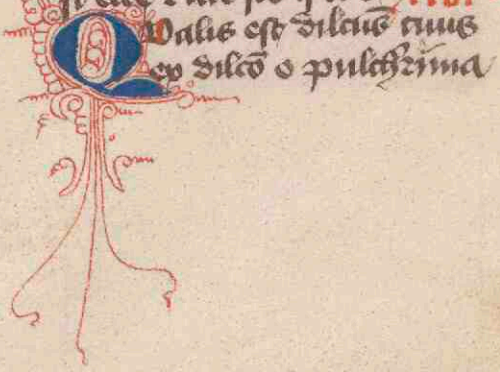 Qualis est dilcūs tuus
ex dilcō o pulcherrima